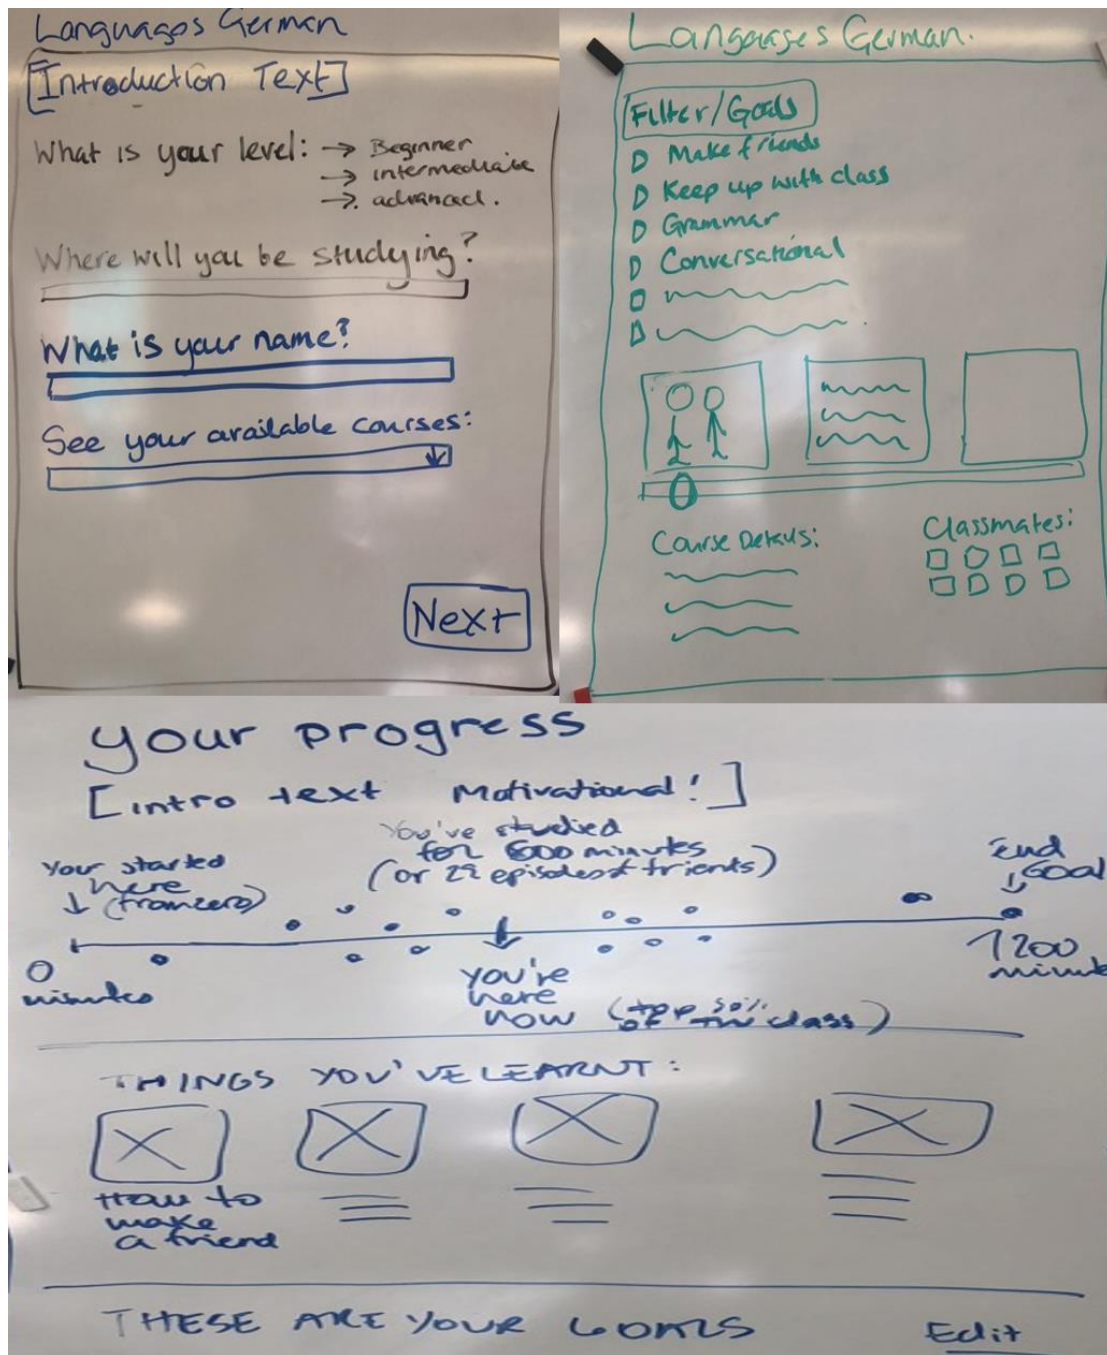 Languages German
[Introduction Text]
What is your level: → Beginner
→ intermediate
→ advanced.
Where will you be studying?
What is your name?
See your available courses:
Next
Languages German.
Filter/Goals
Make friends
Keep up with class
Grammar
Conversational
Course Details:
Classmates:
your progress
[intro text Motivational!]
You've studied
for 600 minutes
(or 29 episodes of friends)
Your started
here
(from zero)
End
Goal
0
minutes
you're
here
now (top 50%
of the class)
1200
minute
THINGS YOU'VE LEARNT:
How to
make
a friend
THESE ARE YOUR GOALS
Edit